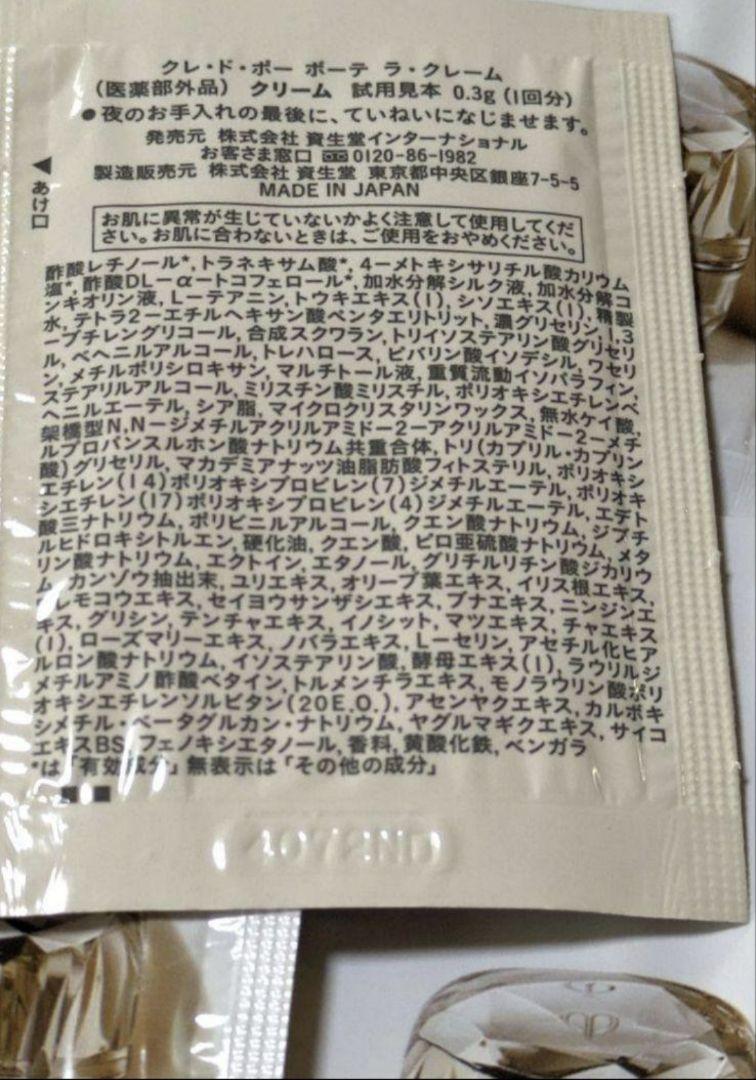 クレ・ド・ポー ボーテ ラ・クレーム
（医薬部外品） クリーム 試用見本 0.3g (1回分)
●夜のお手入れの最後に、ていねいになじませます。
発売元 株式会社 資生堂インターナショナル
お客さま窓口 0120-86-1982
製造販売元 株式会社 資生堂 東京都中央区銀座7-5-5
MADE IN JAPAN
◀あけ口
お肌に異常が生じていないかよく注意して使用してくだ
さい。お肌に合わないときは、ご使用をおやめください。
酢酸レチノール*, トラネキサム酸*, 4-メトキシサリチル酸カリウム
塩*, 酢酸DL-α-トコフェロール*, 加水分解シルク液, 加水分解コ
ンキオリン液, L-テアニン, トウキエキス(1), シソエキス(1), 精製
水, テトラ2-エチルヘキサン酸ペンタエリトリット, 濃グリセリン, 1,3
-ブチレングリコール, 合成スクワラン, トリイソステアリン酸グリセリ
ル, ベヘニルアルコール, トレハロース, ピバリン酸イソデシル, ワセリ
ン, メチルポリシロキサン, マルチトール液, 重質流動イソパラフィン,
ステアリルアルコール, ミリスチン酸ミリスチル, ポリオキシエチレンベ
ヘニルエーテル, シア脂, マイクロクリスタリンワックス, 無水ケイ酸,
架橋型N,N-ジメチルアクリルアミド-2-アクリルアミド-2-メチ
ルプロパンスルホン酸ナトリウム共重合体, トリ(カプリル・カプリン
酸)グリセリル, マカデミアナッツ油脂肪酸フィトステリル, ポリオキシ
エチレン(14)ポリオキシプロピレン(7)ジメチルエーテル, ポリオキ
シエチレン(17)ポリオキシプロピレン(4)ジメチルエーテル, エデト
酸三ナトリウム, ポリビニルアルコール, クエン酸ナトリウム, ジブチ
ルヒドロキシトルエン, 硬化油, クエン酸, ピロ亜硫酸ナトリウム, メタ
リン酸ナトリウム, エクトイン, エタノール, グリチルリチン酸ジカリウ
ム, カンゾウ抽出末, ユリエキス, オリーブ葉エキス, イリス根エキス,
ワレモコウエキス, セイヨウサンザシエキス, ブナエキス, ニンジンエ
キス, グリシン, テンチャエキス, イノシット, マツエキス, チャエキス
(1), ローズマリーエキス, ノバラエキス, L-セリン, アセチル化ヒア
ルロン酸ナトリウム, イソステアリン酸, 酵母エキス(1), ラウリルジ
メチルアミノ酢酸ベタイン, トルメンチラエキス, モノラウリン酸ポリ
オキシエチレンソルビタン(20E.O.), アセンヤクエキス, カルボキ
シメチル・ベータグルカン・ナトリウム, ヤグルマギクエキス, サイコ
エキスBS, フェノキシエタノール, 香料, 黄酸化鉄, ベンガラ
*は「有効成分」無表示は「その他の成分」